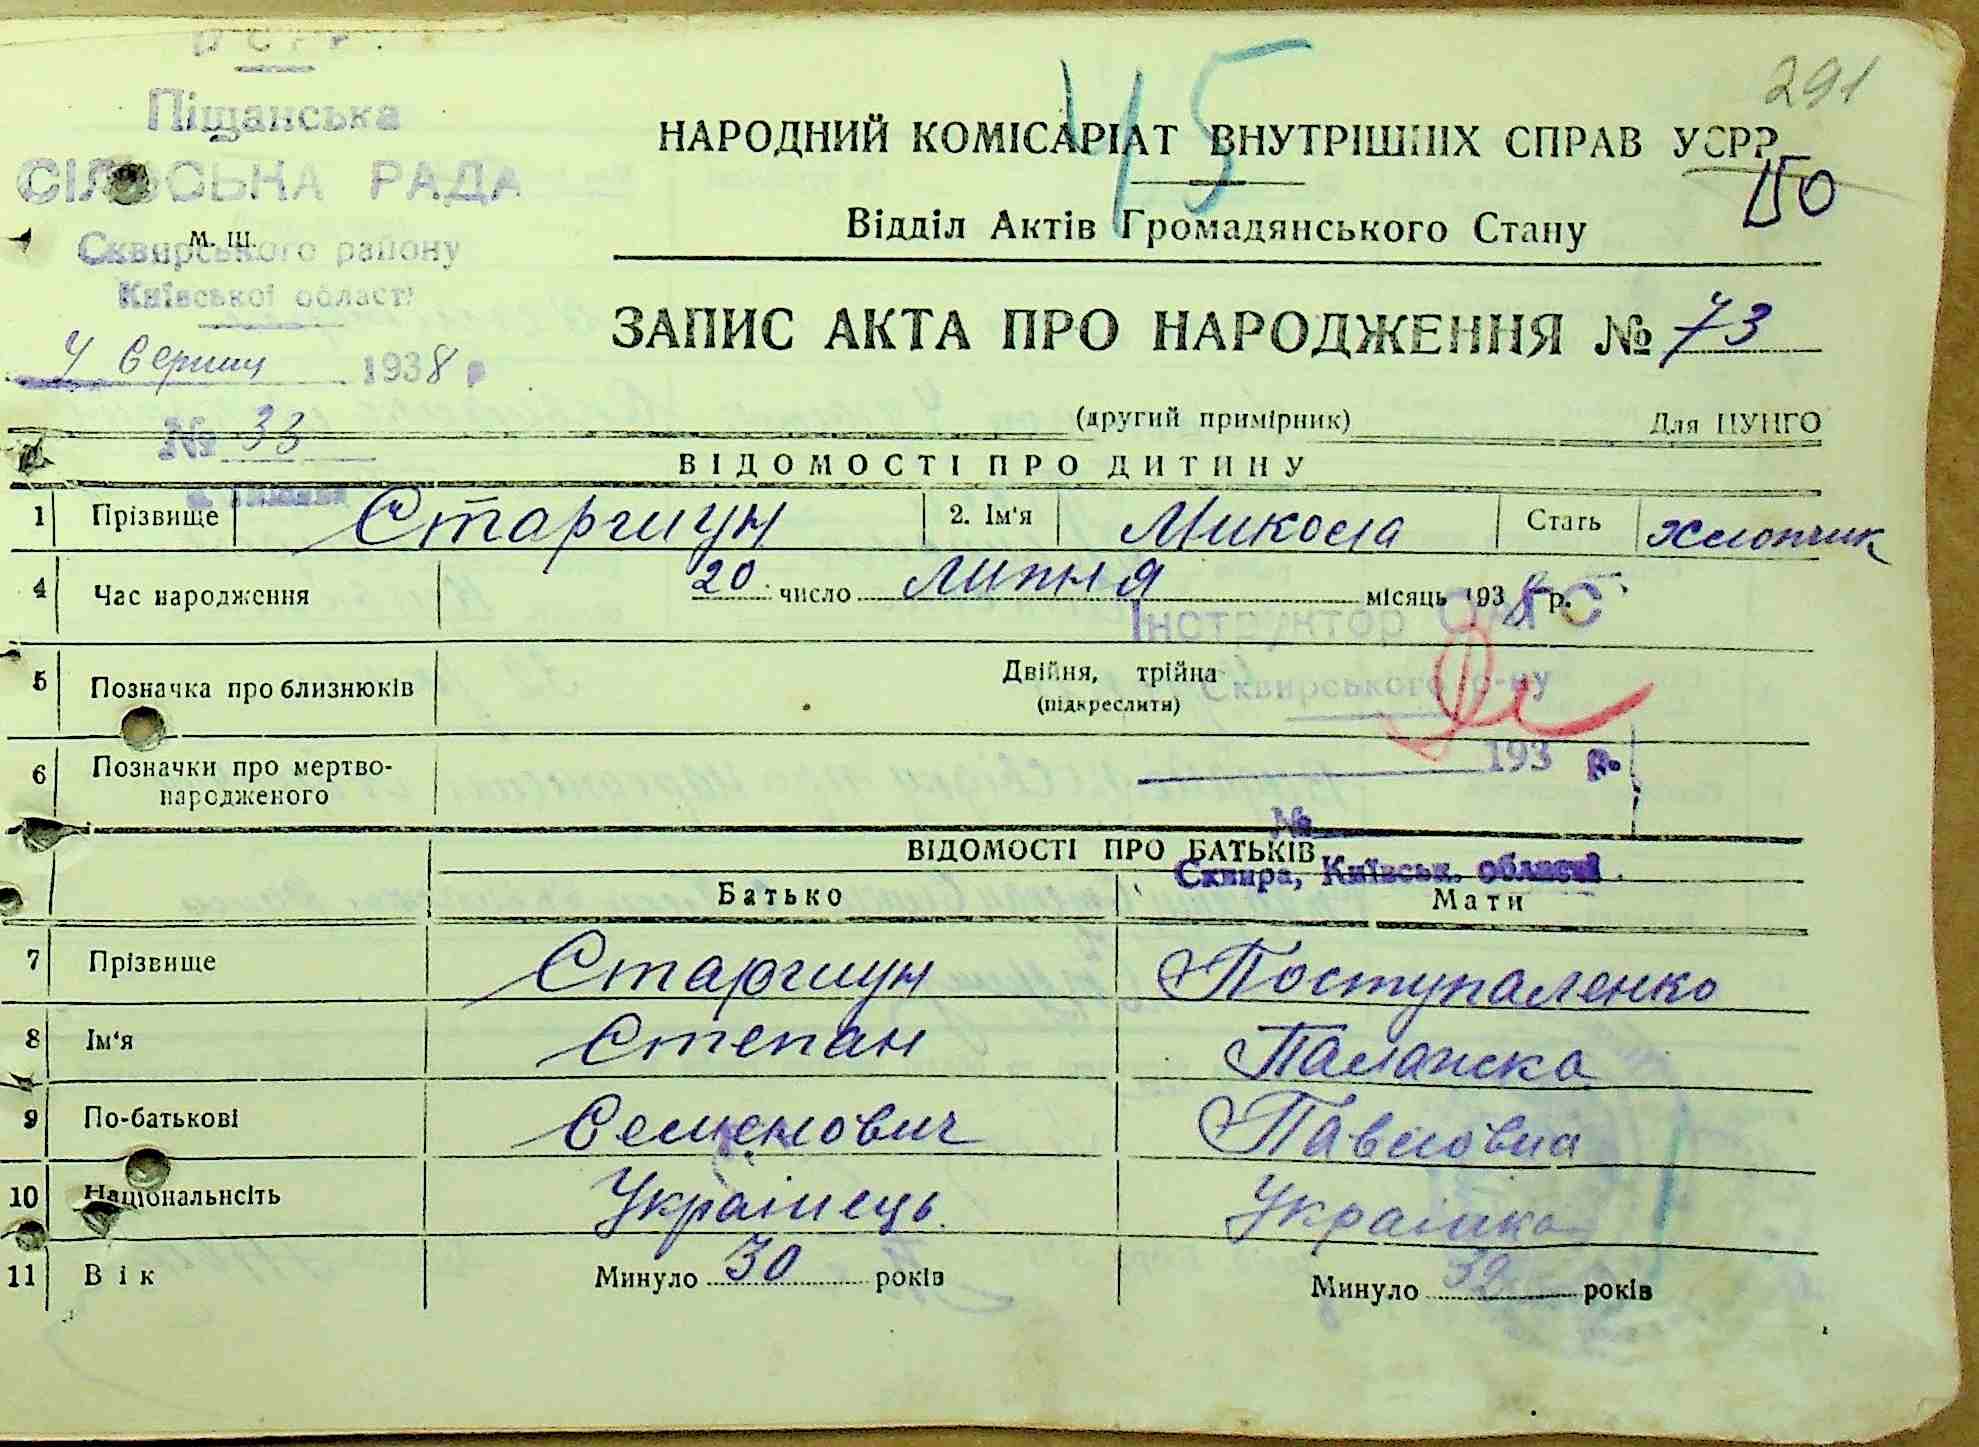 291
45
Піщанська
СІЛЬСЬКА РАДА
М. Ш.
Сквирського району
Київської області
1938 р
№ 33
НАРОДНИЙ КОМІСАРІАТ ВНУТРІШНІХ СПРАВ УСРР
Відділ Актів Громадянського Стану
ЗАПИС АКТА ПРО НАРОДЖЕННЯ № 73
(другий примірник) Для ЦУНГО
ВІДОМОСТІ ПРО ДИТИНУ
1 Прізвище Старчиун 2. Ім'я Микола Стать Хлопчик
4 Час народження 20 число Липня місяць 1938 р.
Інструктор ОАГС
5 Позначка про близнюків Двійня, трійна
(підкреслити)
Сквирського р-ну
6 Позначки про мертво-
народженого
193 р.
№
ВІДОМОСТІ ПРО БАТЬКІВ
Сквира, Київськ. області
Батько Мати
7 Прізвище Старчиун Поступаленко
8 Ім'я Степан Палажка
9 По-батькові Семенович Павловна
10 Національнсіть Українець Українка
11 Вік Минуло 30 років Минуло 32 років